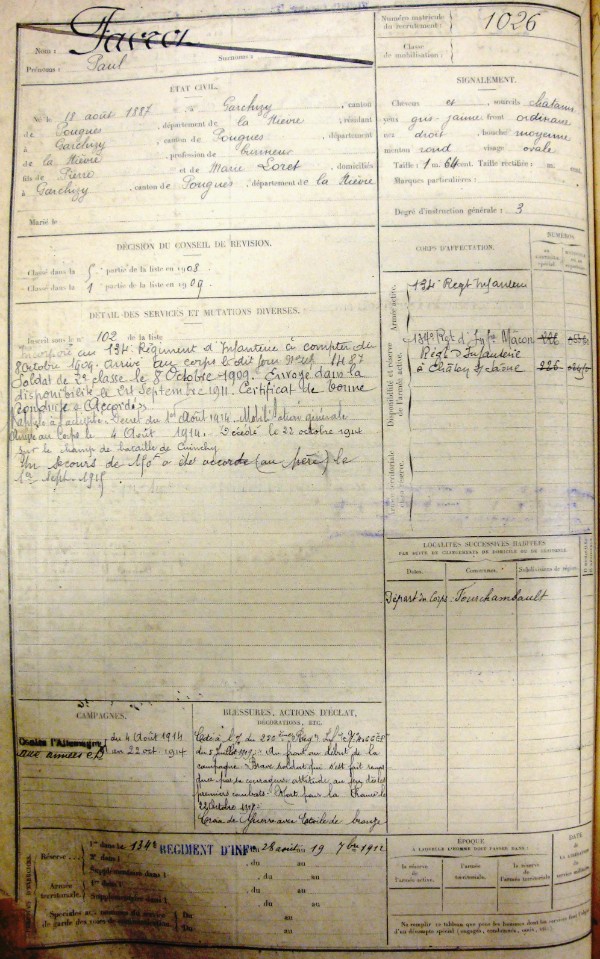 Numéro matricule du recrutement : 1026
Classe de mobilisation :
Nom :
Prénoms : Paul Surnoms :
ÉTAT CIVIL.
Né le 18 août 1887 à Garchizy, canton
de Pougues, département de la Nièvre, résidant
à Garchizy, canton de Pougues, département
de la Nièvre, profession de
fils de Pierre et de Marie Loret, domiciliés
à Garchizy, canton de Pougues, département de la Nièvre
Marié le
SIGNALEMENT.
Cheveux et sourcils châtains
yeux gris-jaune front ordinaire
nez droit, bouche moyenne
menton rond visage ovale
Taille : 1 m. 64 cent. Taille rectifiée : m. cent.
Marques particulières :
Degré d'instruction générale : 3
DÉCISION DU CONSEIL DE RÉVISION.
Classé dans la 5e partie de la liste en 1908
Classé dans la 1 partie de la liste en 1909.
CORPS D'AFFECTATION.
NUMÉROS
Armée active.
134e Régt Infanterie
Disponibilité et réserve de l'armée active.
134e Rgt d'Infie Mâcon
Régt d'Infanterie
à Châlon s/ Saône
Armée territoriale et sa réserve.
DÉTAIL DES SERVICES ET MUTATIONS DIVERSES.
Inscrit sous le n° 102 de la liste
au 134e Régiment d'Infanterie à compter du
8 Octobre 1909. Arrivé au corps le dit jour
Soldat de 2e classe le 8 Octobre 1909. Envoyé dans la
disponibilité le Septembre 1911. Certificat de bonne
conduite "Accordé"
Rappelé à l'activité. Décret du 1er Août 1914. Mobilisation générale
Arrivé au Corps le 4 Août 1914. Décédé le 22 octobre 1914
sur le champ de bataille de Cuinchy
Un secours de 150f a été accordé (au père) le
1er Sept. 1915
LOCALITÉS SUCCESSIVES HABITÉES
PAR SUITE DE CHANGEMENTS DE DOMICILE OU DE RÉSIDENCE.
Dates. Communes. Subdivisions de région.
Départ du Corps : Fourchambault
CAMPAGNES.
Contre l'Allemagne
aux armées
du 4 Août 1914
au 22 oct. 1914
BLESSURES, ACTIONS D'ÉCLAT,
DÉCORATIONS, ETC.
Cité à l'O/ du
du Juillet : Au front au début de la
campagne. Brave soldat qui s'est fait remar
quer par sa courageuse attitude au feu dès les
premiers combats. Mort pour la France le
22 Octobre
Croix de Guerre avec Etoile de bronze
Réserve
1re dans le 134e RÉGIMENT D'INFIE du 28 août au 19 7bre 1912
2e dans l du au
Supplémentaire dans l du au
Armée territoriale.
1re dans l du au
Supplémentaire dans l du au
Spéciales aux hommes du service
de garde des voies de communication.
Du au
Du au
ÉPOQUE
À LAQUELLE L'HOMME DOIT PASSER DANS :
la réserve de l'armée active.
l'armée territoriale.
la réserve de l'armée territoriale
DATE
de
LA LIBÉRATION
du
service militaire.
Ne remplir ce tableau que pour les hommes dont les services
d'un décompte spécial (engagés, condamnés, omis, etc.)